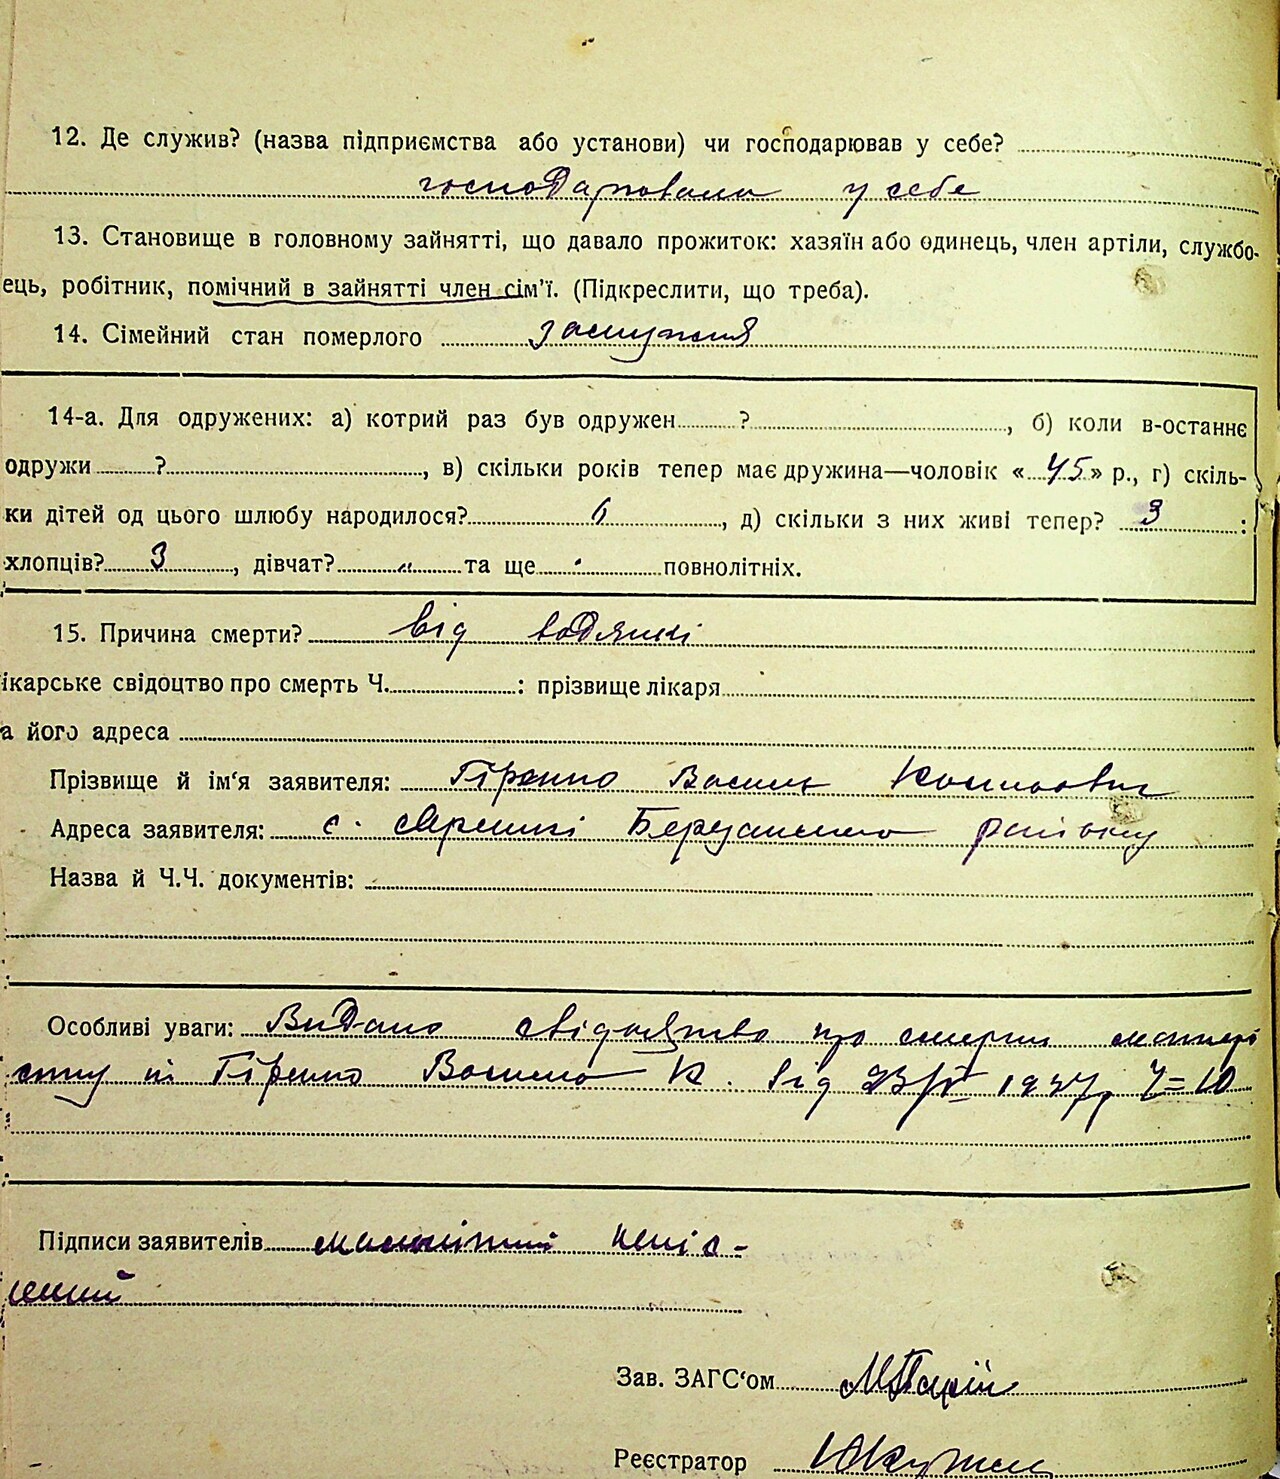 12. Де служив? (назва підприємства або установи) чи господарював у себе?
господарювала у себе
13. Становище в головному зайнятті, що давало прожиток: хазяїн або одинець, член артіли, службо-
ець, робітник, помічний в зайнятті член сім’ї. (Підкреслити, що треба).
14. Сімейний стан померлого замужня
14-а. Для одружених: а) котрий раз був одружен ?, б) коли в-останнє
одружи ?, в) скільки років тепер має дружина—чоловік «45» р., г) скіль-
ки дітей од цього шлюбу народилося? 6, д) скільки з них живі тепер? 3 :
хлопців? 3, дівчат? „ та ще повнолітніх.
15. Причина смерти? від водянкі
ікарське свідоцтво про смерть Ч. : прізвище лікаря
а його адреса
Прізвище й ім‘я заявителя: Гіренко Василь
Адреса заявителя: с. Ярешкі району
Назва й Ч.Ч. документів:
Особливі уваги: Видано свідоцтво про смерть
Гіренко Василю К. від 23/ 1937р Ч=10
Підписи заявителів
Зав. ЗАГС‘ом
Реєстратор